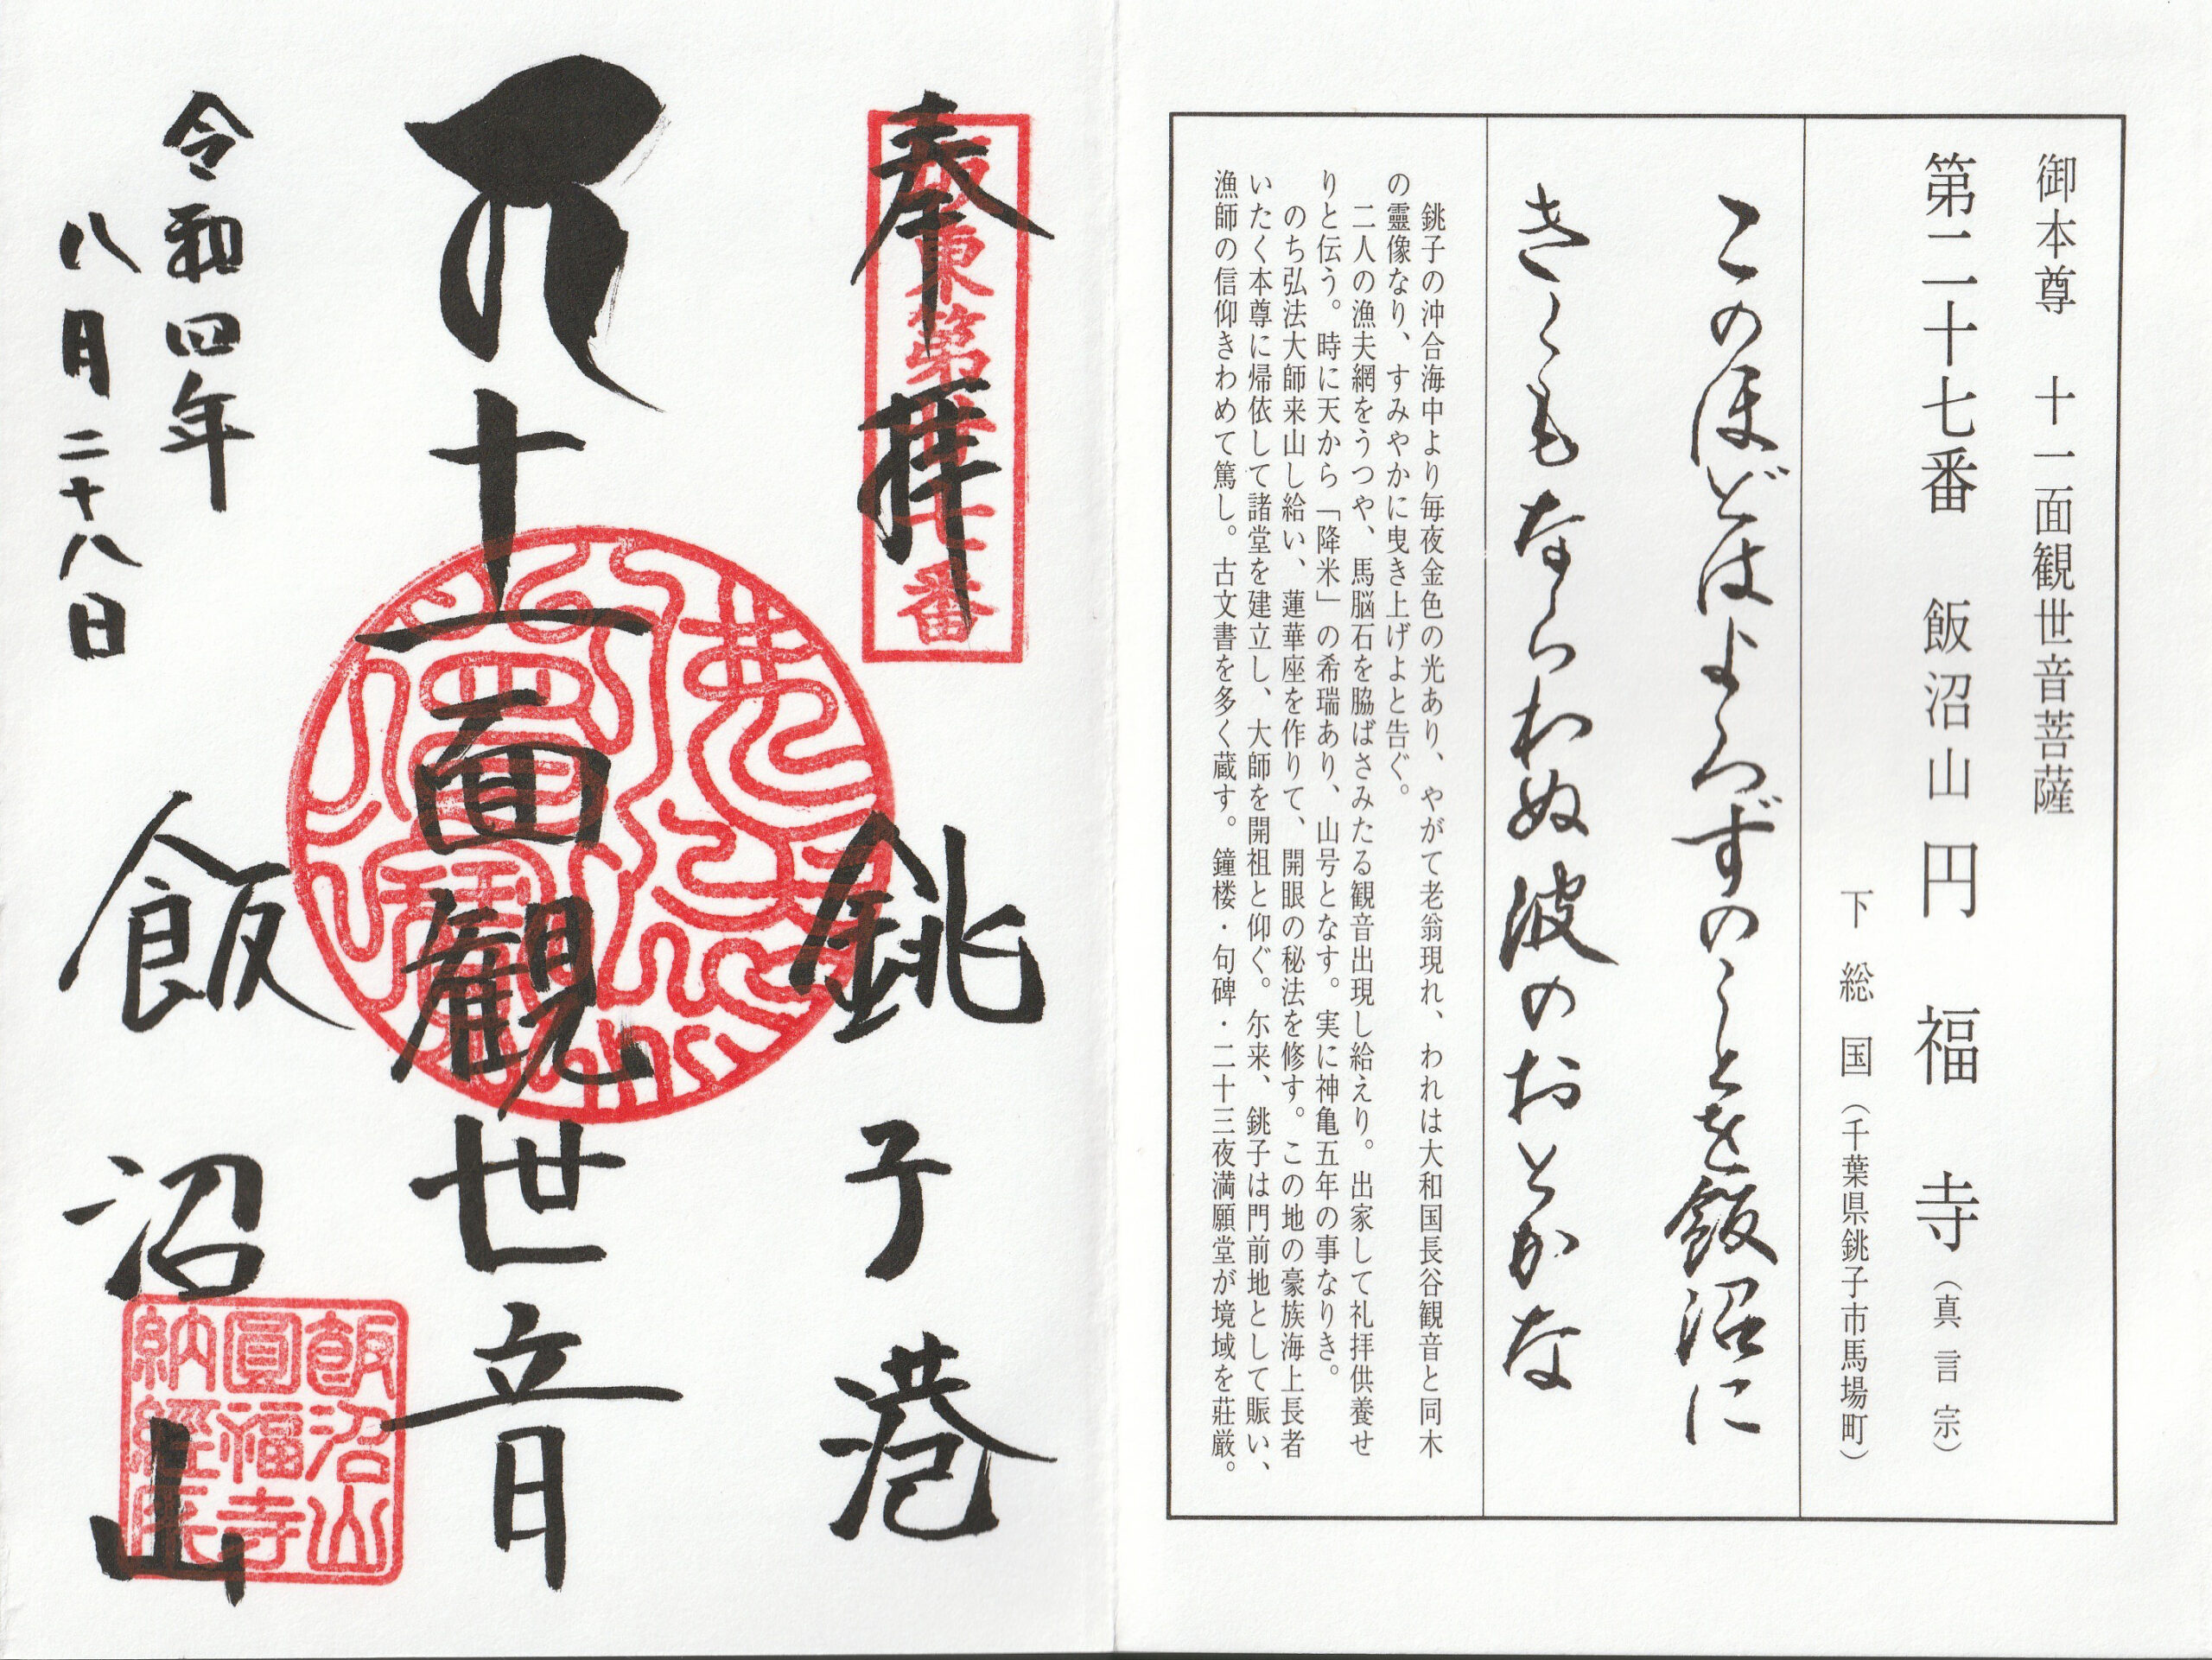 御本尊　十一面観世音菩薩
第二十七番　飯沼山　円福寺（真言宗）
下総国（千葉県銚子市馬場町）
このほどはよろずのことを飯沼に
きくもならわぬ波のおとかな
銚子の沖合海中より毎夜金色の光あり、やがて老翁現れ、われは大和国長谷観音と同木
の靈像なり、すみやかに曳き上げよと告ぐ。
二人の漁夫網をうつや、馬脳石を脇ばさみたる観音出現し給えり。出家して礼拝供養せ
りと伝う。時に天から「降米」の希瑞あり、山号となす。実に神亀五年の事なりき。
のち弘法大師来山し給い、蓮華座を作りて、開眼の秘法を修す。この地の豪族海上長者
いたく本尊に帰依して諸堂を建立し、大師を開祖と仰ぐ。尓来、銚子は門前地として賑い、
漁師の信仰きわめて篤し。古文書を多く蔵す。鐘楼・句碑・二十三夜満願堂が境域を荘厳。
奉拝
坂東第廿七番
銚子港
十一面観世音
令和四年
八月二十八日
飯沼山
飯沼山
圓福寺
納經所